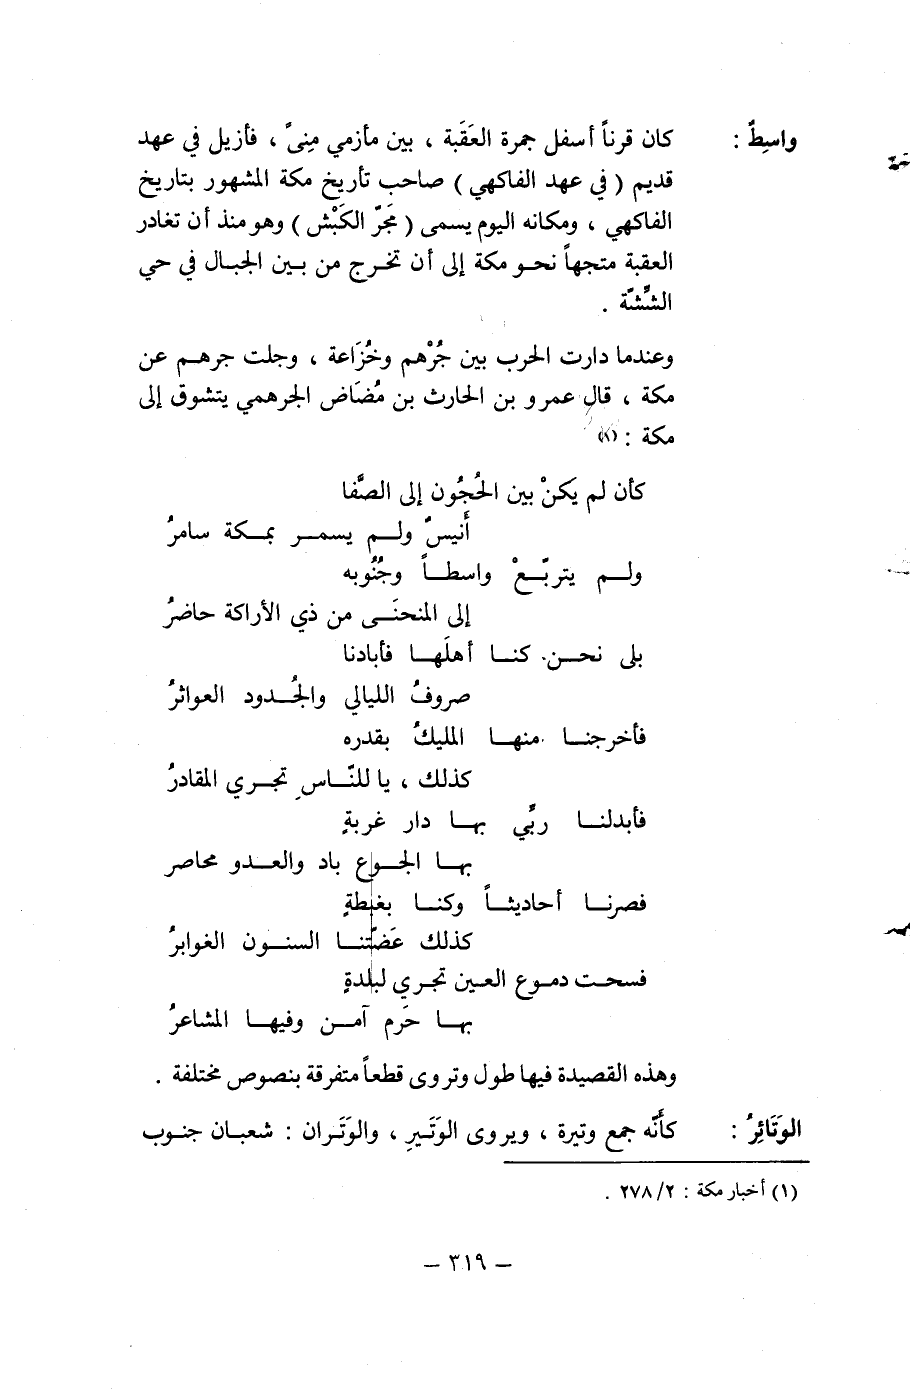 واسِطٌ : كان قرناً أسفل جمرة العَقَبة ، بين مأزمي مِنىً ، فأزيل في عهد
قديم ( في عهد الفاكهي ) صاحب تأريخ مكة المشهور بتاريخ
الفاكهي ، ومكانه اليوم يسمى ( مَجَرّ الكَبْش ) وهو منذ أن تغادر
العقبة متجهاً نحو مكة إلى أن تخرج من بين الجبال في حي
الشُّشَّة .
وعندما دارت الحرب بين جُرْهم وخُزَاعة ، وجلت جرهم عن
مكة ، قال عمرو بن الحارث بن مُضَاض الجرهمي يتشوق إلى
مكة : (١)
كأن لم يكنْ بين الحُجُون إلى الصَّفا
أَنيسٌ ولم يسمر بمكة سامرُ
ولم يتربّعْ واسطاً وجُنُوبه
إلى المنحنَى من ذي الأراكة حاضرُ
بلى نحن كنا أهلَها فأبادنا
صروفُ الليالي والجُدود العواثرُ
فأخرجنا منها المليكُ بقدره
كذلك ، يا للنَّاسِ تجري المقادرُ
فأبدلنا ربِّي بها دار غربةٍ
بها الجوع باد والعدو محاصر
فصرنا أحاديثاً وكنا بغبطةٍ
كذلك عَضّتنا السنون الغوابرُ
فسحت دموع العين تجري لبلدةٍ
بها حَرَم آمن وفيها المشاعرُ
وهذه القصيدة فيها طول وتروى قطعاً متفرقة بنصوص مختلفة .
الوَتَائِرُ : كأنّه جمع وتيرة ، ويروى الوَتَيرِ ، والوَتَران : شعبان جنوب
(١) أخبار مكة : ٢/ ٢٧٨ .
– ٣١٩ –